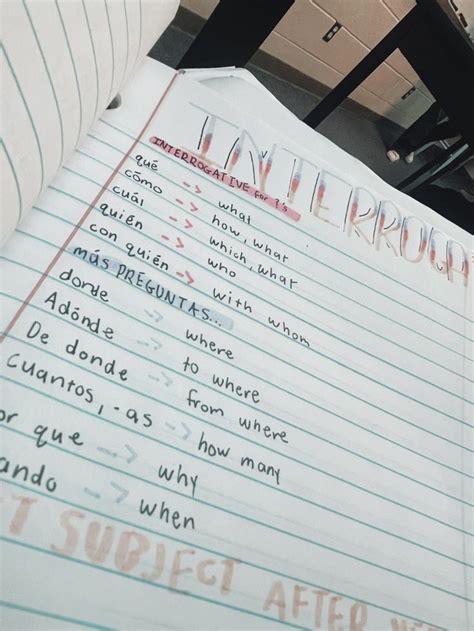 INTERROGA
INTERROGATIVE for ?'s
qué --> what
cómo --> how, what
cuál --> which, what
quién --> who
con quién --> with whom
más PREGUNTAS...
donde --> where
Adónde --> to where
De donde --> from where
cuantos, -as --> how many
or que --> why
ando --> when
T SUBJECT AFTER